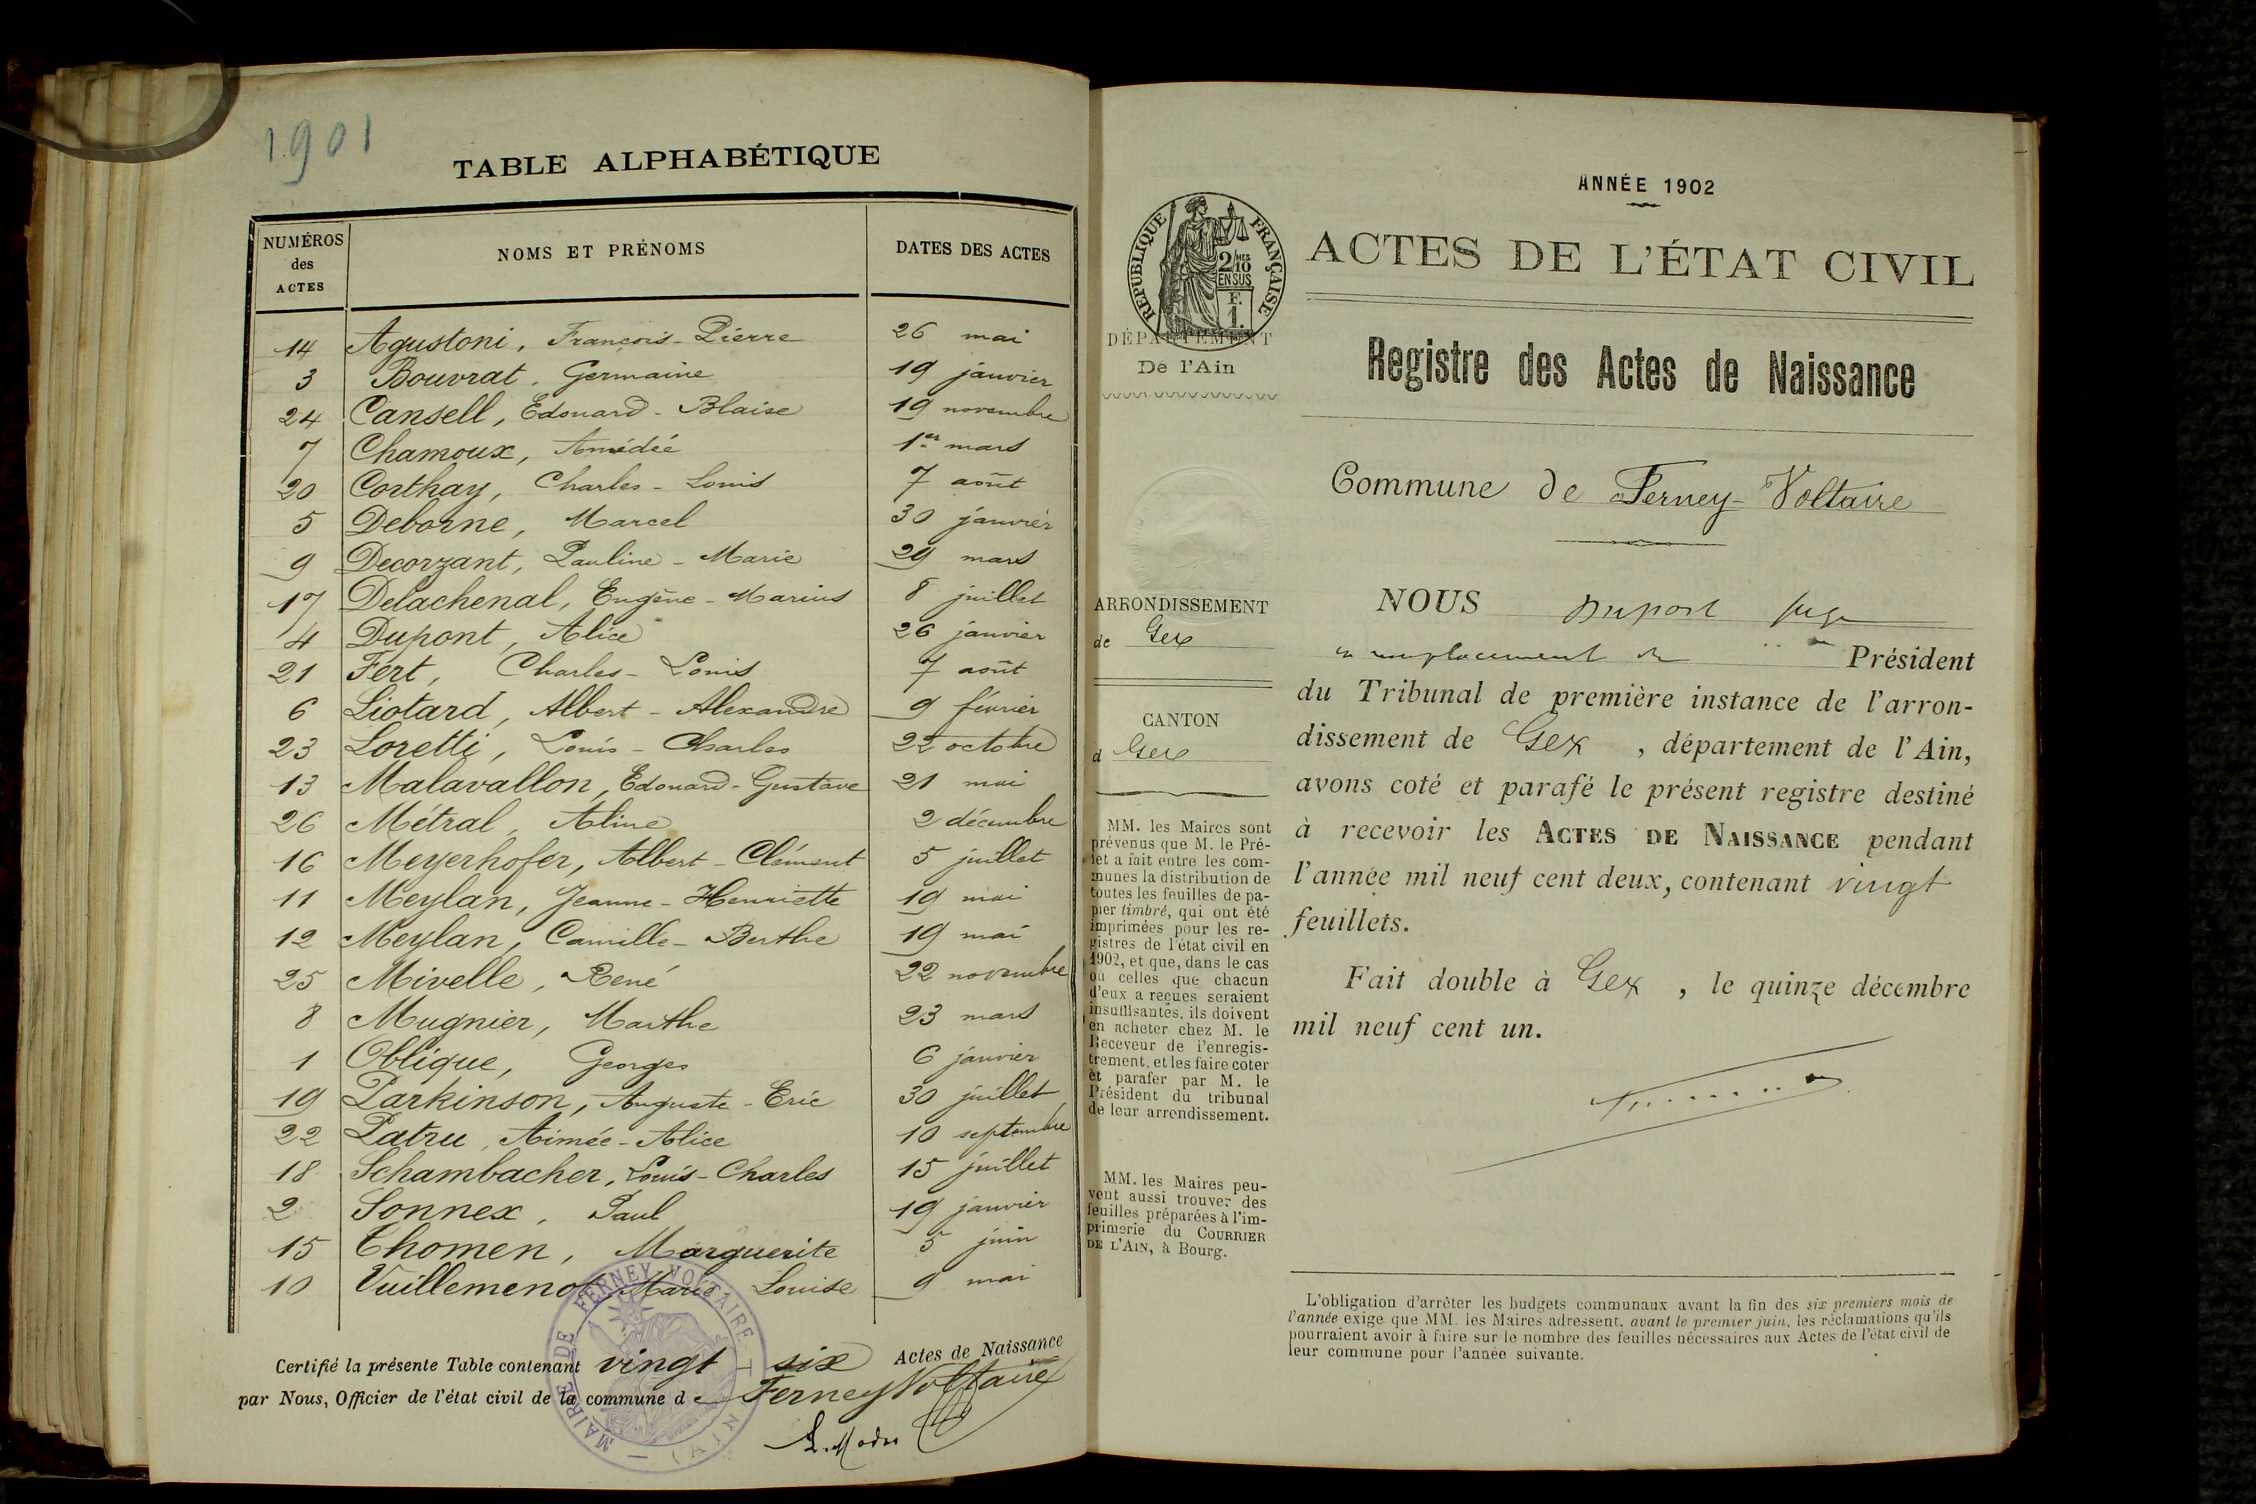 1901
TABLE ALPHABÉTIQUE
NUMÉROS des ACTES NOMS ET PRÉNOMS DATES DES ACTES
14 Agustoni, François-Pierre 26 mai
3 Bouvrat, Germaine 19 janvier
24 Cansell, Edouard-Blaise 19 novembre
7 Chamoux, Amédée 1er mars
20 Corthay, Charles-Louis 7 août
5 Deborne, Marcel 30 janvier
9 Decorzant, Pauline-Marie 29 mars
17 Delachenal, Eugène-Marius 8 juillet
4 Dupont, Alice 26 janvier
21 Fert, Charles-Louis 7 août
6 Liotard, Albert-Alexandre 9 février
23 Loretti, Louis-Charles 22 octobre
13 Malavallon, Edouard-Gustave 21 mai
26 Métral, Aline 2 décembre
16 Meyerhofer, Albert-Clément 5 juillet
11 Meylan, Jeanne-Henriette 19 mai
12 Meylan, Camille-Berthe 19 mai
25 Mivelle, René 22 novembre
8 Mugnier, Marthe 23 mars
1 Oblique, Georges 6 janvier
19 Parkinson, Auguste-Eric 30 juillet
22 Patru, Aimée-Alice 10 septembre
18 Schambacher, Louis-Charles 15 juillet
2 Sonnex, Paul 19 janvier
15 Thomen, Marguerite 5 juin
10 Vuillemenot, Marie Louise 9 mai
Certifié la présente Table contenant vingt six Actes de Naissance
par Nous, Officier de l'état civil de la commune de Ferney Voltaire
MAIRIE DE FERNEY-VOLTAIRE (AIN)
ANNÉE 1902
RÉPUBLIQUE FRANÇAISE
2/10 MES
EN SUS
F.
1.
ACTES DE L'ÉTAT CIVIL
DÉPARTEMENT
De l'Ain
Registre des Actes de Naissance
Commune de Ferney-Voltaire
ARRONDISSEMENT
de Gex
CANTON
d Gex
MM. les Maires sont
prévenus que M. le Pré-
fet a fait entre les com-
munes la distribution de
toutes les feuilles de pa-
pier timbré, qui ont été
imprimées pour les re-
gistres de l'état civil en
1902, et que, dans le cas
où celles que chacun
d'eux a reçues seraient
insuffisantes, ils doivent
en acheter chez M. le
Receveur de l'enregis-
trement, et les faire coter
et parafer par M. le
Président du tribunal
de leur arrondissement.
MM. les Maires peu-
vent aussi trouver des
feuilles préparées à l'im-
primerie du COURRIER
DE L'AIN, à Bourg.
NOUS Dupont juge
en remplacement du Président
du Tribunal de première instance de l'arron-
dissement de Gex, département de l'Ain,
avons coté et parafé le présent registre destiné
à recevoir les ACTES DE NAISSANCE pendant
l'année mil neuf cent deux, contenant vingt
feuillets.
Fait double à Gex, le quinze décembre
mil neuf cent un.
L'obligation d'arrêter les budgets communaux avant la fin des six premiers mois de
l'année exige que MM. les Maires adressent, avant le premier juin, les réclamations qu'ils
pourraient avoir à faire sur le nombre des feuilles nécessaires aux Actes de l'état civil de
leur commune pour l'année suivante.